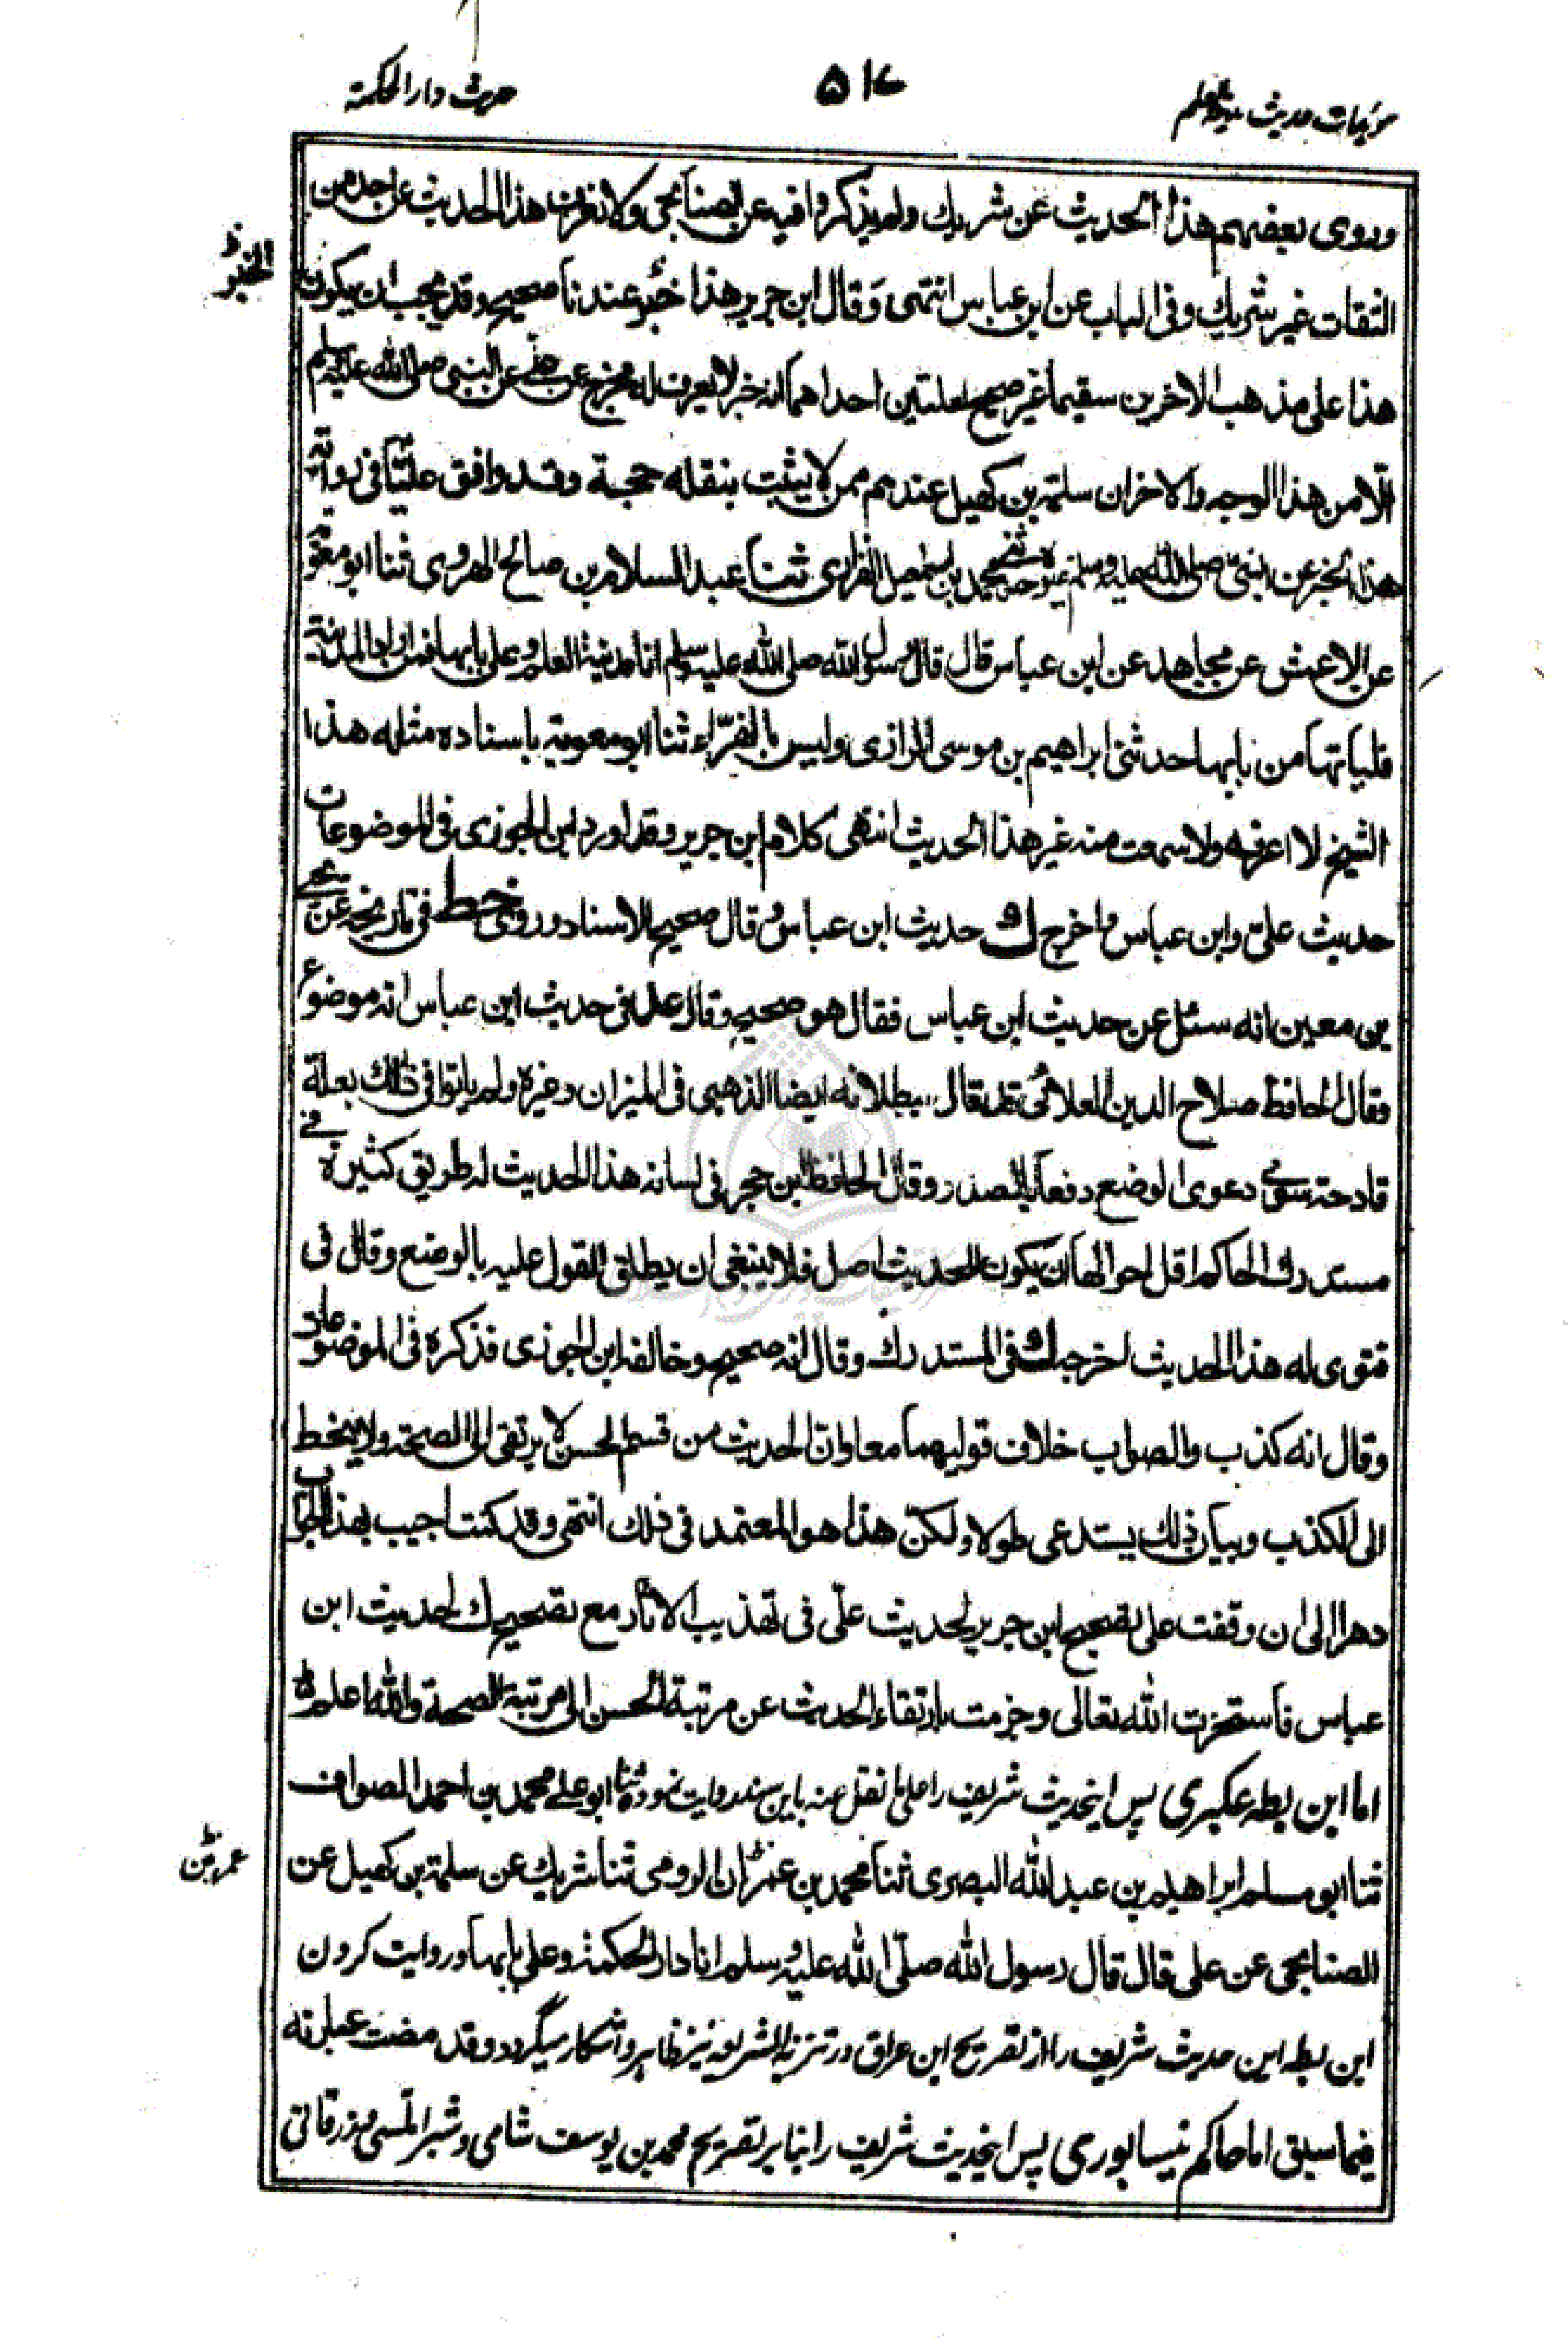 مؤیدات حدیث مدینة العلم
۵۱۶
حدیث دار الحکمة
وروی بعضهم هذا الحدیث عن شریك ولم یذکروا فیه عن الصنابحی ولا نعرف هذا الحدیث عن احد من
الثقات غیر شریك وفی الباب عن ابن عباس انتهی وَقال ابن جریر هذا خبر عندنا صحیح وقد یجب ان یکون
الخبر
هذا علی مذهب الاخرین سقیما غیر صحیح لعلتین احداهما انه خبر لا یعرف له مخرج عن علی عن النبی صلی الله علیه وسلم
الّا من هذا الوجه والاخران سلمة بن کهیل عندهم ممن لا یثبت بنقله حجة وقد وافق علیّا فی روایة
هذا الخبر عن النبی صلی الله علیه وسلم غیره حدثنی محمد بن اسمٰعیل الفزاری ثنا عبد السلام بن صالح الهروی ثنا ابو معٰویة
عن الاعمش عن مجاهد عن ابن عباس قال قال رسول الله صلی الله علیه وسلم انا مدینة العلم وعلی بابها فمن اراد المدینة
فلیاتها من بابها حدثنی ابراهیم بن موسی الرازی ولیس بالفرّاء ثنا ابو معویة باسناده مثله هذا
الشیخ لا اعرفه ولا سمعت منه غیر هذا الحدیث انتهی کلام ابن جریر وقد اورد ابن الجوزی فی الموضوعات
حدیث علی وابن عباس واخرج ك حدیث ابن عباس وقال صحیح الاسناد وروی خط فی تاریخه عن یحیی
بن معین انه سئل عن حدیث ابن عباس فقال هو صحیح وقال عد فی حدیث ابن عباس انه موضوع
وقال الحافظ صلاح الدین العلائی قد قال ببطلانه ایضا الذهبی فی المیزان وغیره ولم یاتوا فی ذلك بعلة
قادحة سوی دعوی الوضع دفعا بالصدر وقال الحافظ ابن حجر فی لسانه هذا الحدیث له طریق کثیرة فی
مستدرك الحاکم اقل احوالها ان یکون للحدیث اصل فلا ینبغی ان یطلق القول علیه بالوضع وقال فی
فتوی له هذا الحدیث اخرجه ك فی المستدرك وقال انه صحیح وخالفه ابن الجوزی فذکره فی الموضوعات
وقال انه کذب والصواب خلاف قولیهما معا وان الحدیث من قسم الحسن لا یرتقی الی الصحة ولا ینحط
الی الکذب وبیان ذلك یستدعی طولا ولکنّ هذا هو المعتمد فی ذلك انتهی وقد کنت اجیب بهذا الجواب
دهرا الی ان وقفت علی تصحیح ابن جریر لحدیث علیّ فی تهذیب الآثار مع تصحیح ك لحدیث ابن
عباس فاستخرت الله تعالی وجزمت بارتقاء الحدیث عن مرتبة الحسن الی مرتبة الصحة والله اعلم
اما ابن بطه عکبری پس اینحدیث شریف را علی ما نقل عنه باین سند روایت نموده ثنا ابو علی محمد بن احمد الصواف
ثنا ابو مسلم ابراهیم بن عبد الله البصری ثنا محمد بن عمران الرومی ثنا شریك عن سلمة بن کهیل عن
عمر بن
الصنابحی عن علی قال قال رسول الله صلّی الله علیه وسلم انا دار الحکمة وعلی بابها وروایت کردن
ابن بطه این حدیث شریف را از تصریح ابن عراق در تنزیه الشریعه نیز ظاهر و آشکار میگردد وقد مضت عبارته
فیما سبق اما حاکم نیسابوری پس اینحدیث شریف را بنا بر تصریح محمد بن یوسف شامی و شبراملسی و زرقانی